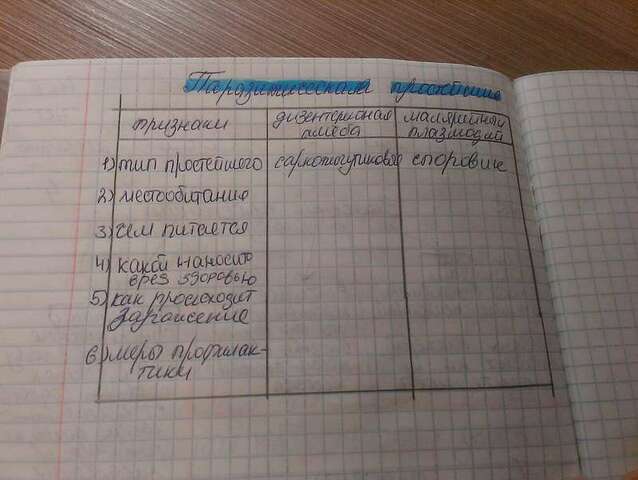 Паразитические простейшие
признаки дизентерийная малярийный
амёба плазмодий
1) тип простейшего саркожгутиковые споровики
2) местообитание
3) чем питается
4) какой наносит
вред здоровью
5) как происходит
заражение
6) меры профилак-
тики